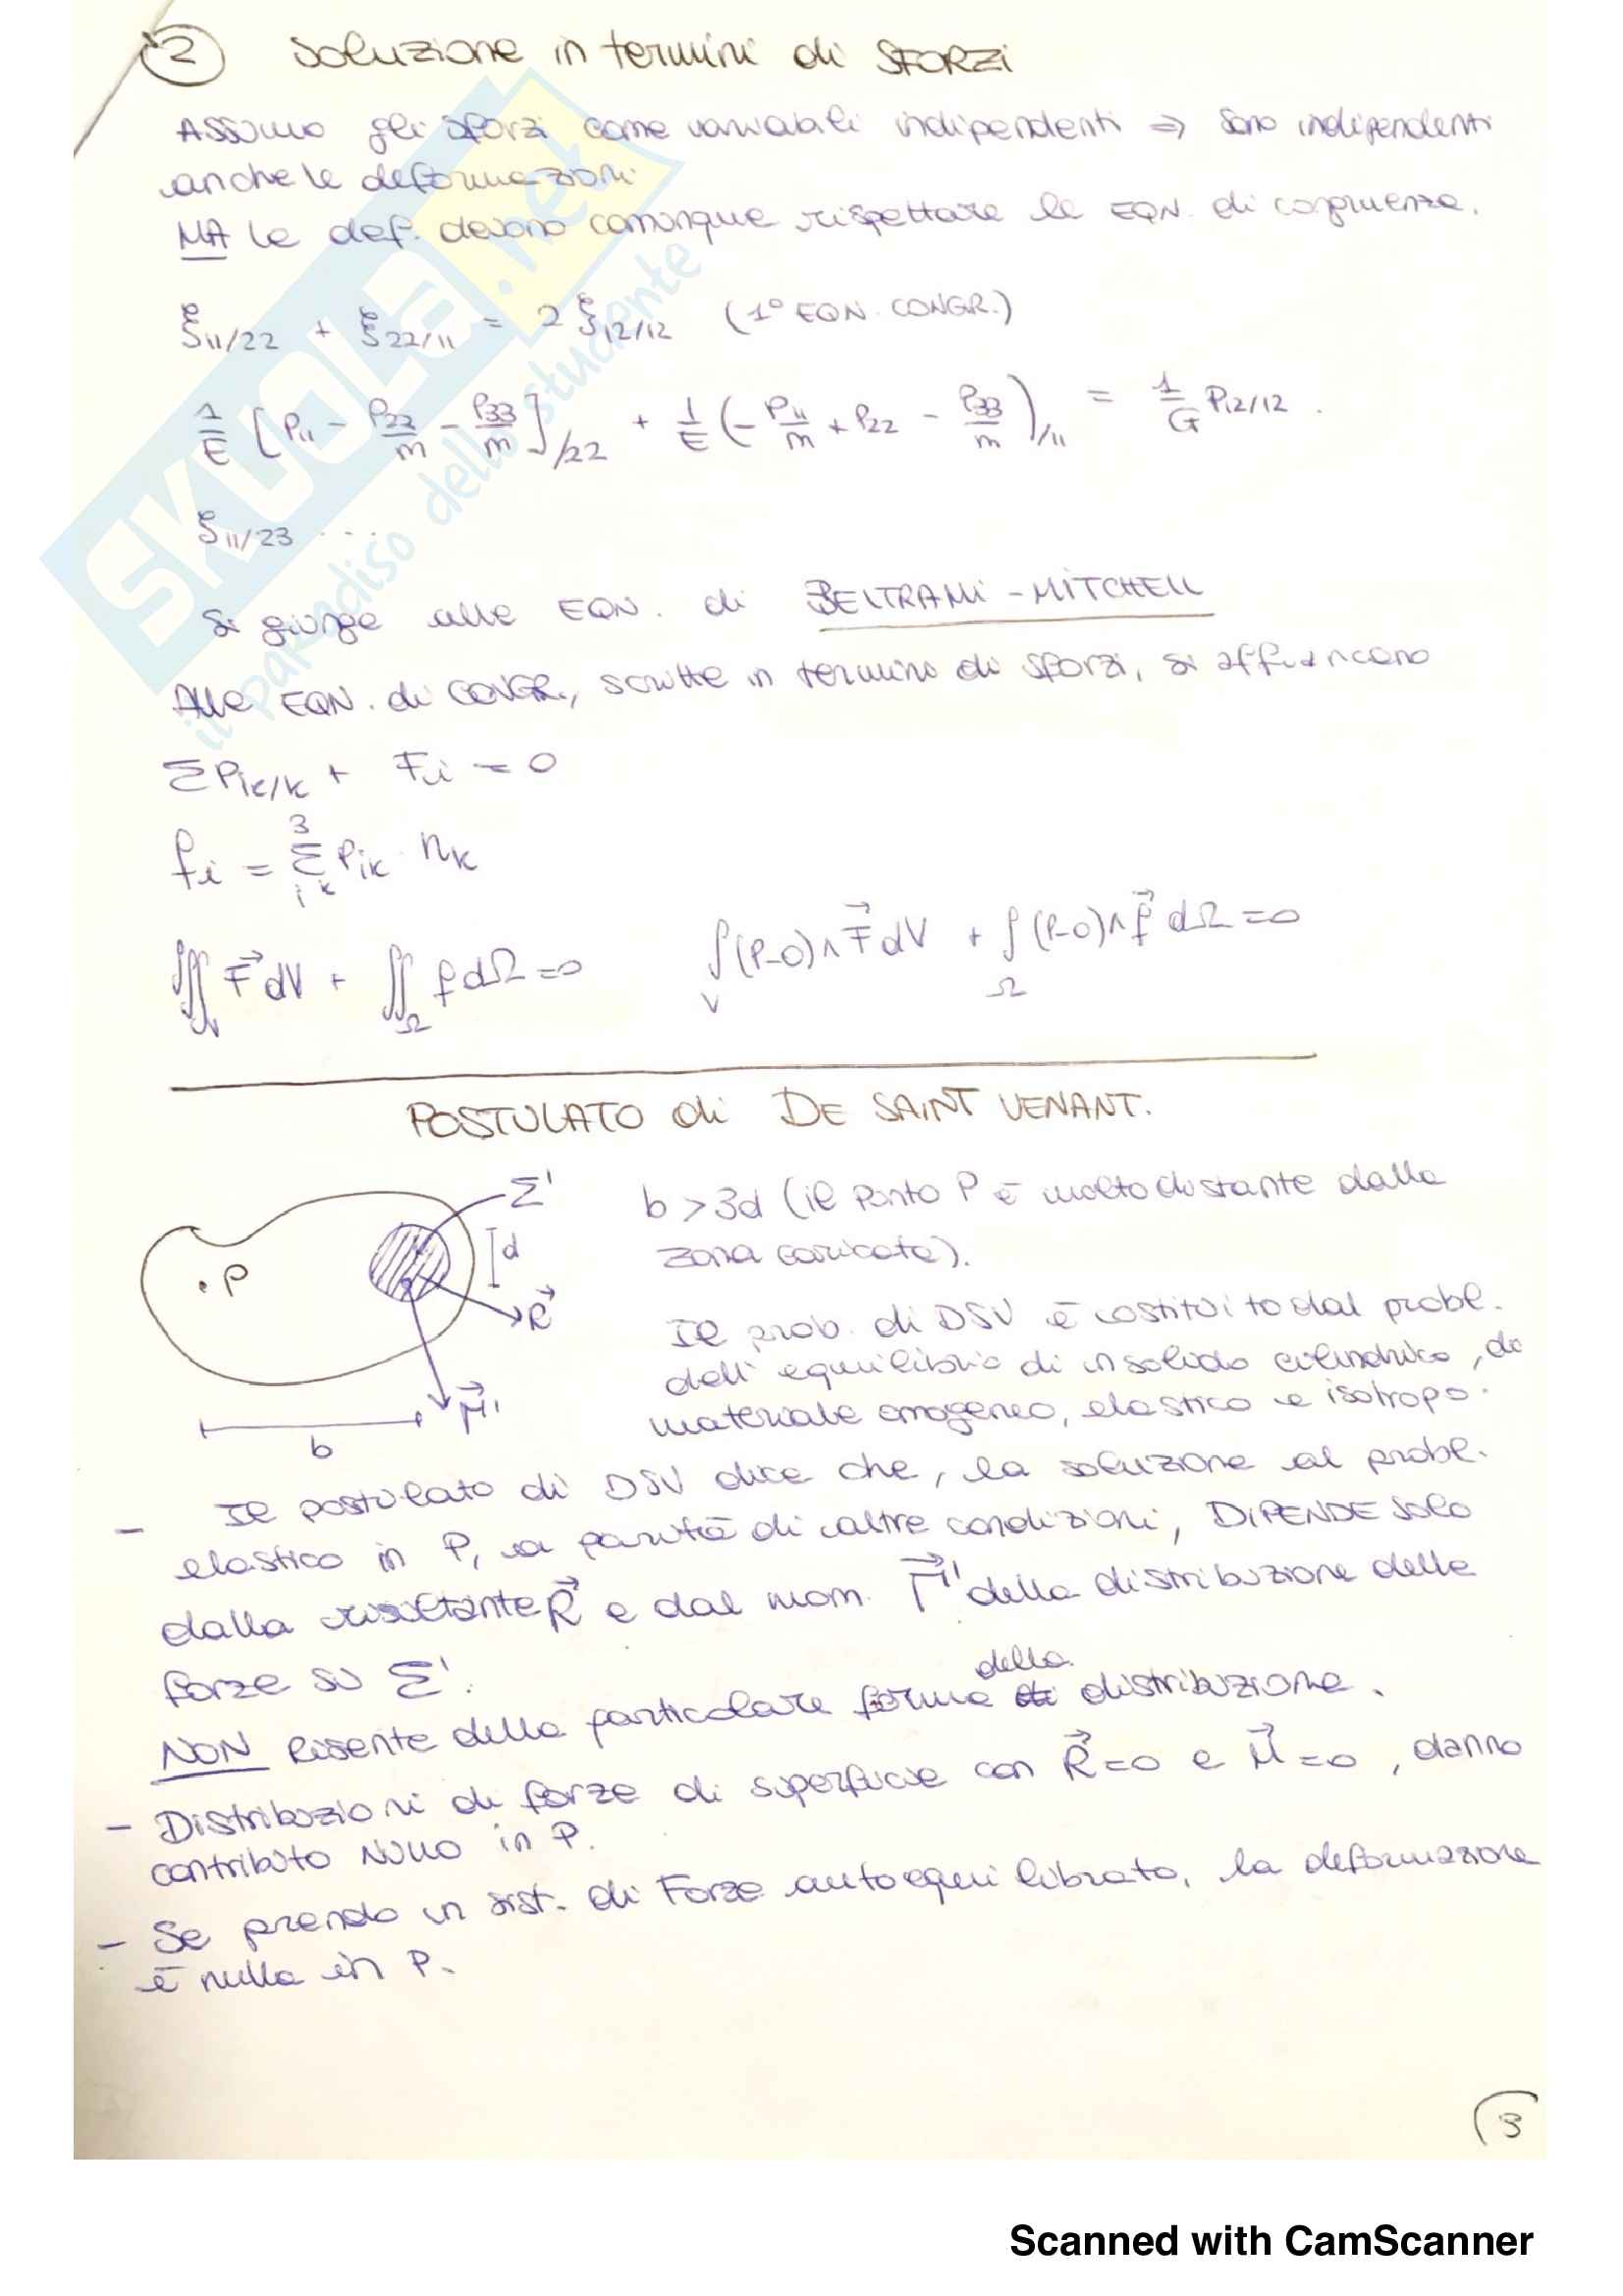 2 Soluzione in termini di SFORZI
Assumo gli sforzi come variabili indipendenti ⇒ sono indipendenti
anche le deformazioni
MA le def. devono comunque rispettare le EQN. di congruenza.
ξ11/22 + ξ22/11 = 2 ξ12/12 (1° EQN. CONGR.)
1/E [P11 - P22/m - P33/m]/22 + 1/E (- P11/m + P22 - P33/m)/11 = 1/G P12/12 .
ξ11/23 ...
Si giunge alle EQN. di BELTRAMI - MITCHELL
Alle EQN. di CONGR., scritte in termini di sforzi, si affiancano
ΣPik/k + Fi = 0
fi = 3 Σ 1 k Pik · nk
∭V F⃗ dV + ∬Ω f dΩ = 0 ∫V (P-O) ∧ F⃗ dV + ∫Ω (P-O) ∧ f⃗ dΩ = 0
POSTULATO di DE SAINT VENANT.
Σ'
b > 3d (il punto P è molto distante dalla
d
zona caricata).
P
R⃗
Il prob. di DSV è costituito dal probl.
dell'equilibrio di un solido cilindrico, di
M⃗'
materiale omogeneo, elastico e isotropo.
b
- Il postulato di DSV dice che, la soluzione al probl.
elastico in P, a parità di altre condizioni, DIPENDE solo
dalla risultante R⃗ e dal mom. M⃗' della distribuzione delle
forze su Σ'.
NON risente della particolare forma della distribuzione.
- Distribuzioni di forze di superficie con R⃗=0 e M⃗=0, danno
contributo NULLO in P.
- Se prendo un sist. di Forze autoequilibrato, la deformazione
è nulla in P.
3
SKUOLA.net
il paradiso dello studente
Scanned with CamScanner